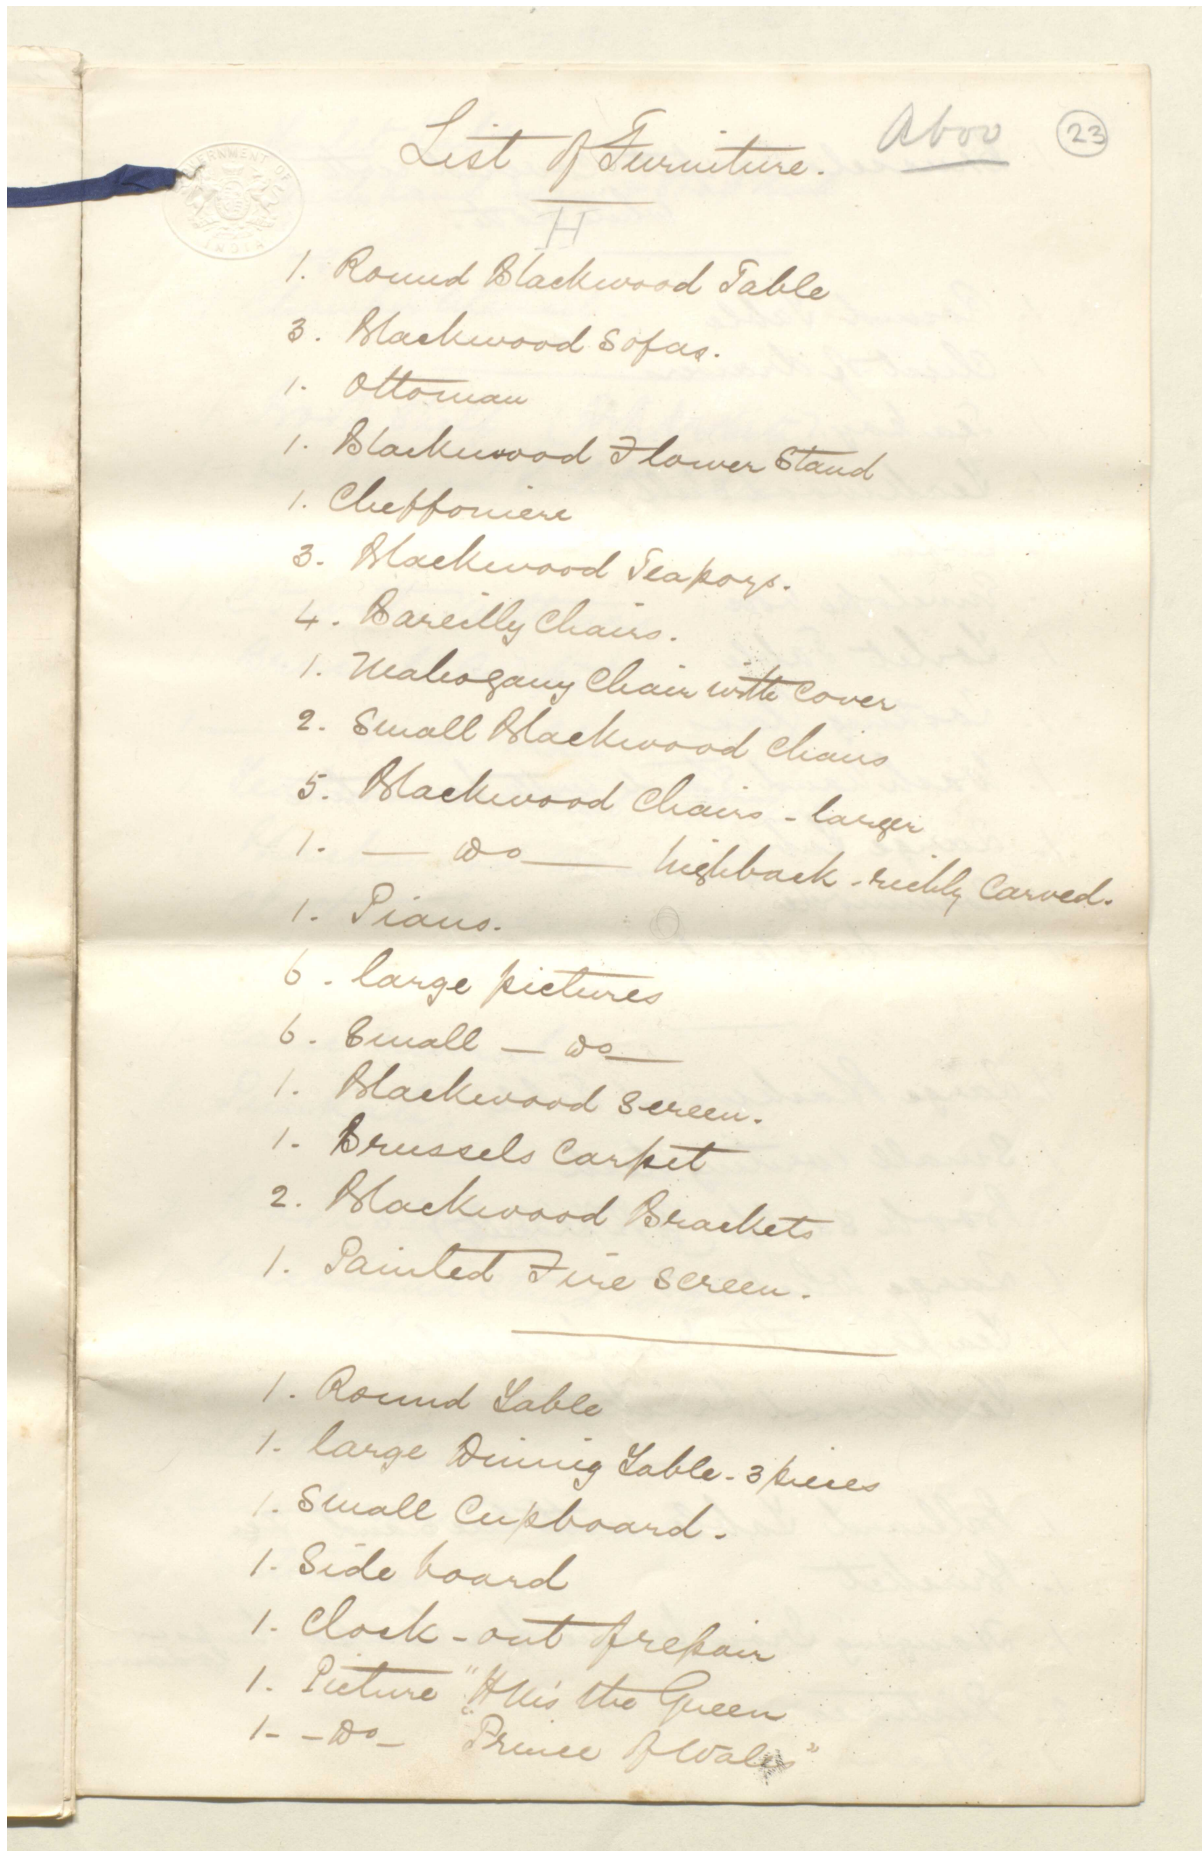 Aboo
23
List of Furniture.
GOVERNMENT OF INDIA
H
1. Round Blackwood Table
3. Blackwood Sofas.
1. Ottoman
1. Blackwood Flower Stand
1. Cheffoniere
3. Blackwood Teapoys.
4. Bareilly Chairs.
1. Mahogany Chair with Cover
2. Small Blackwood Chairs
5. Blackwood Chairs - larger
1. — Do — highback - richly Carved.
1. Piano.
6. large pictures
6. Small — Do —
1. Blackwood Screen.
1. Brussels Carpet
2. Blackwood Brackets
1. Painted Fire Screen.
1. Round Table
1. large Dining Table - 3 pieces
1. Small Cupboard.
1. Side board
1. Clock - out of repair
1. Picture "H M's the Queen
1 - - Do - "Prince of Wales"